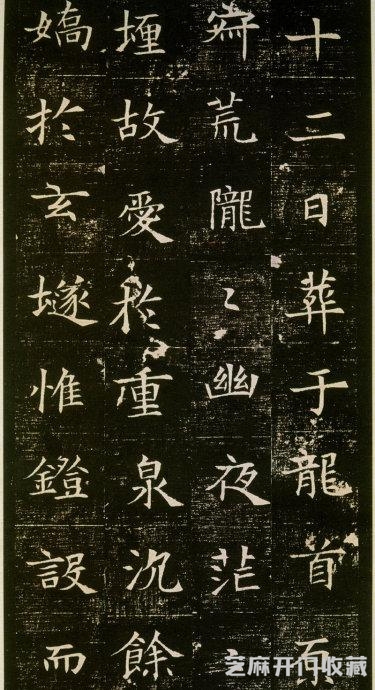 十二日葬于龍首原
荒隴〻幽夜茫〻
埋故愛於重泉沉餘
嬌於玄隧惟鐙設而
芝麻开门收藏